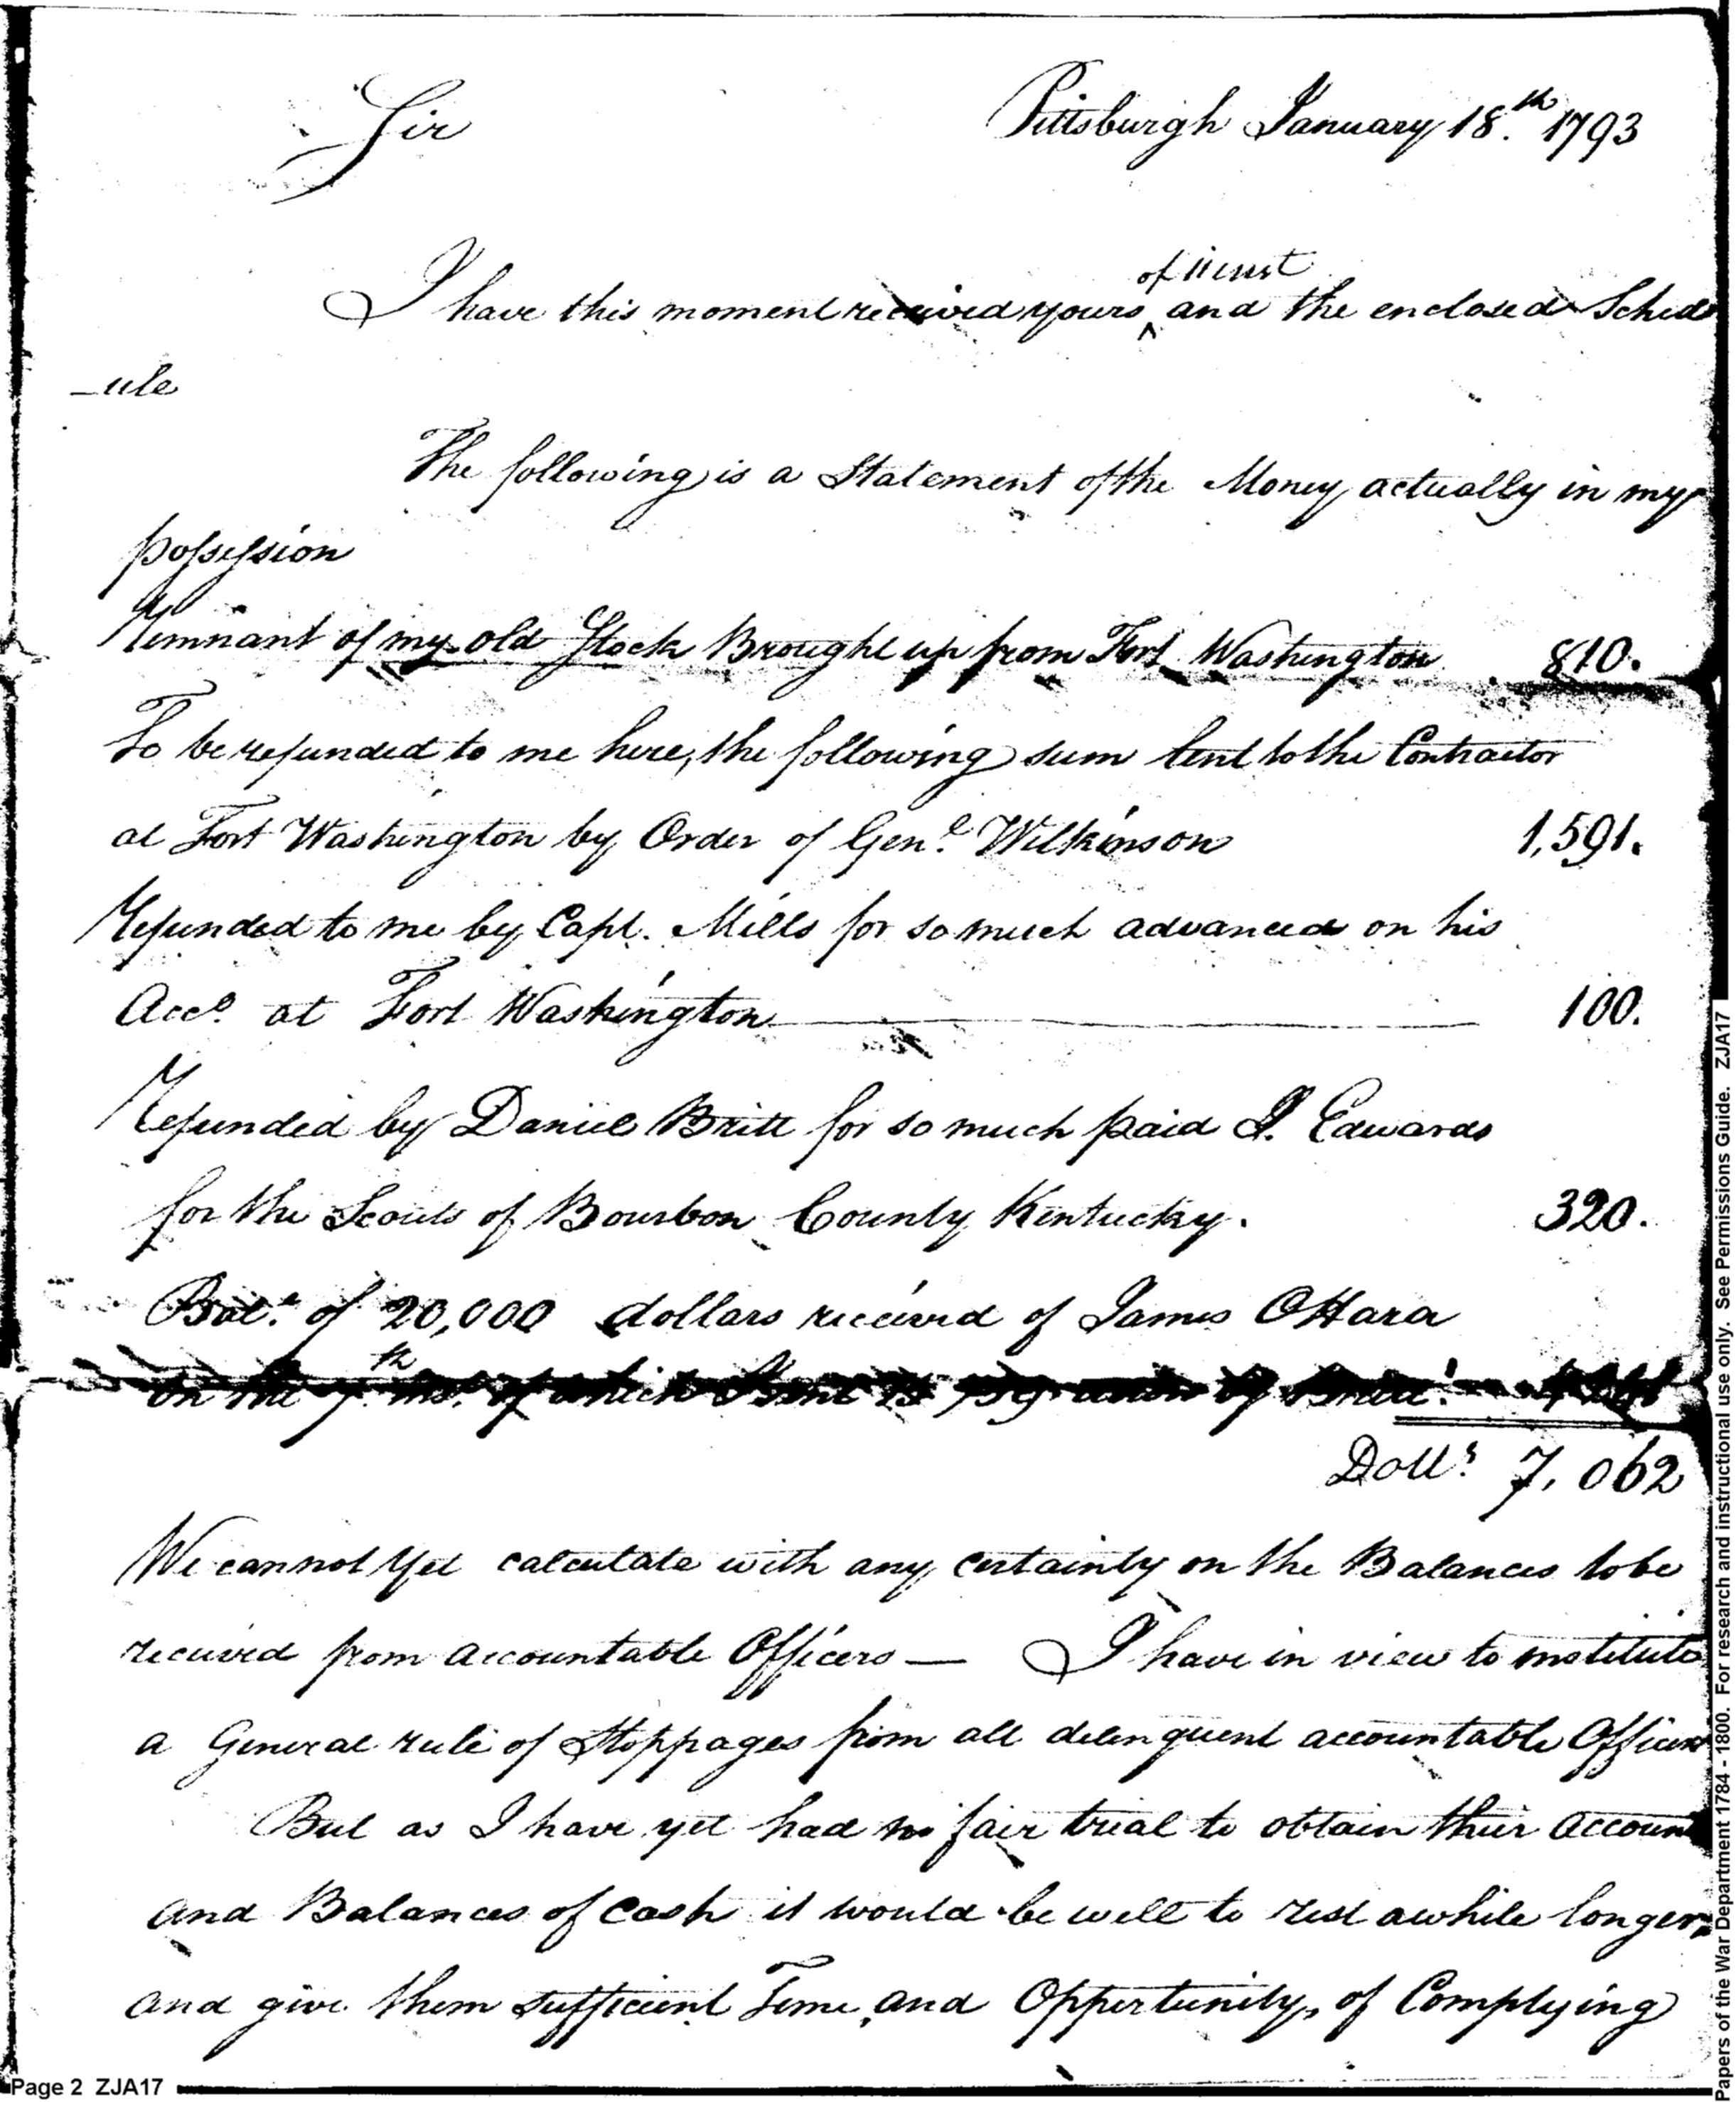 Sir
Pittsburgh January 18.th 1793
of 11 inst
I have this moment received yours ^ and the enclosed Sched
_ule
The following is a Statement of the Money actually in my
possession
Remnant of my old Stock Brought up from Fort Washington 810.
To be refunded to me here, the following sum lent to the Contractor
at Fort Washington by Order of Gen.l Wilkinson 1,591.
Refunded to me by Capt. Mills for so much advanced on his
Acc.o at Fort Washington 100.
Refunded by Daniel Britt for so much paid J. Edwards
for the Scouts of Bourbon County Kentucky. 320.
Bal.e of 20,000 dollars received of James OHara
on the 7.th ins.t of which
Doll.s 7,062
We cannot Yet calculate with any certainty on the Balances to be
received from accountable Officers — I have in view to institute
a General rule of Stoppages from all delenquent accountable Officers
But as I have yet had no fair trial to obtain their Account
and Balances of Cash it would be well to rest awhile longer,
and give them sufficient Time, and Oppertunity, of Complying
Page 2 ZJA17
Papers of the War Department 1784 - 1800. For research and instructional use only. See Permissions Guide. ZJA17